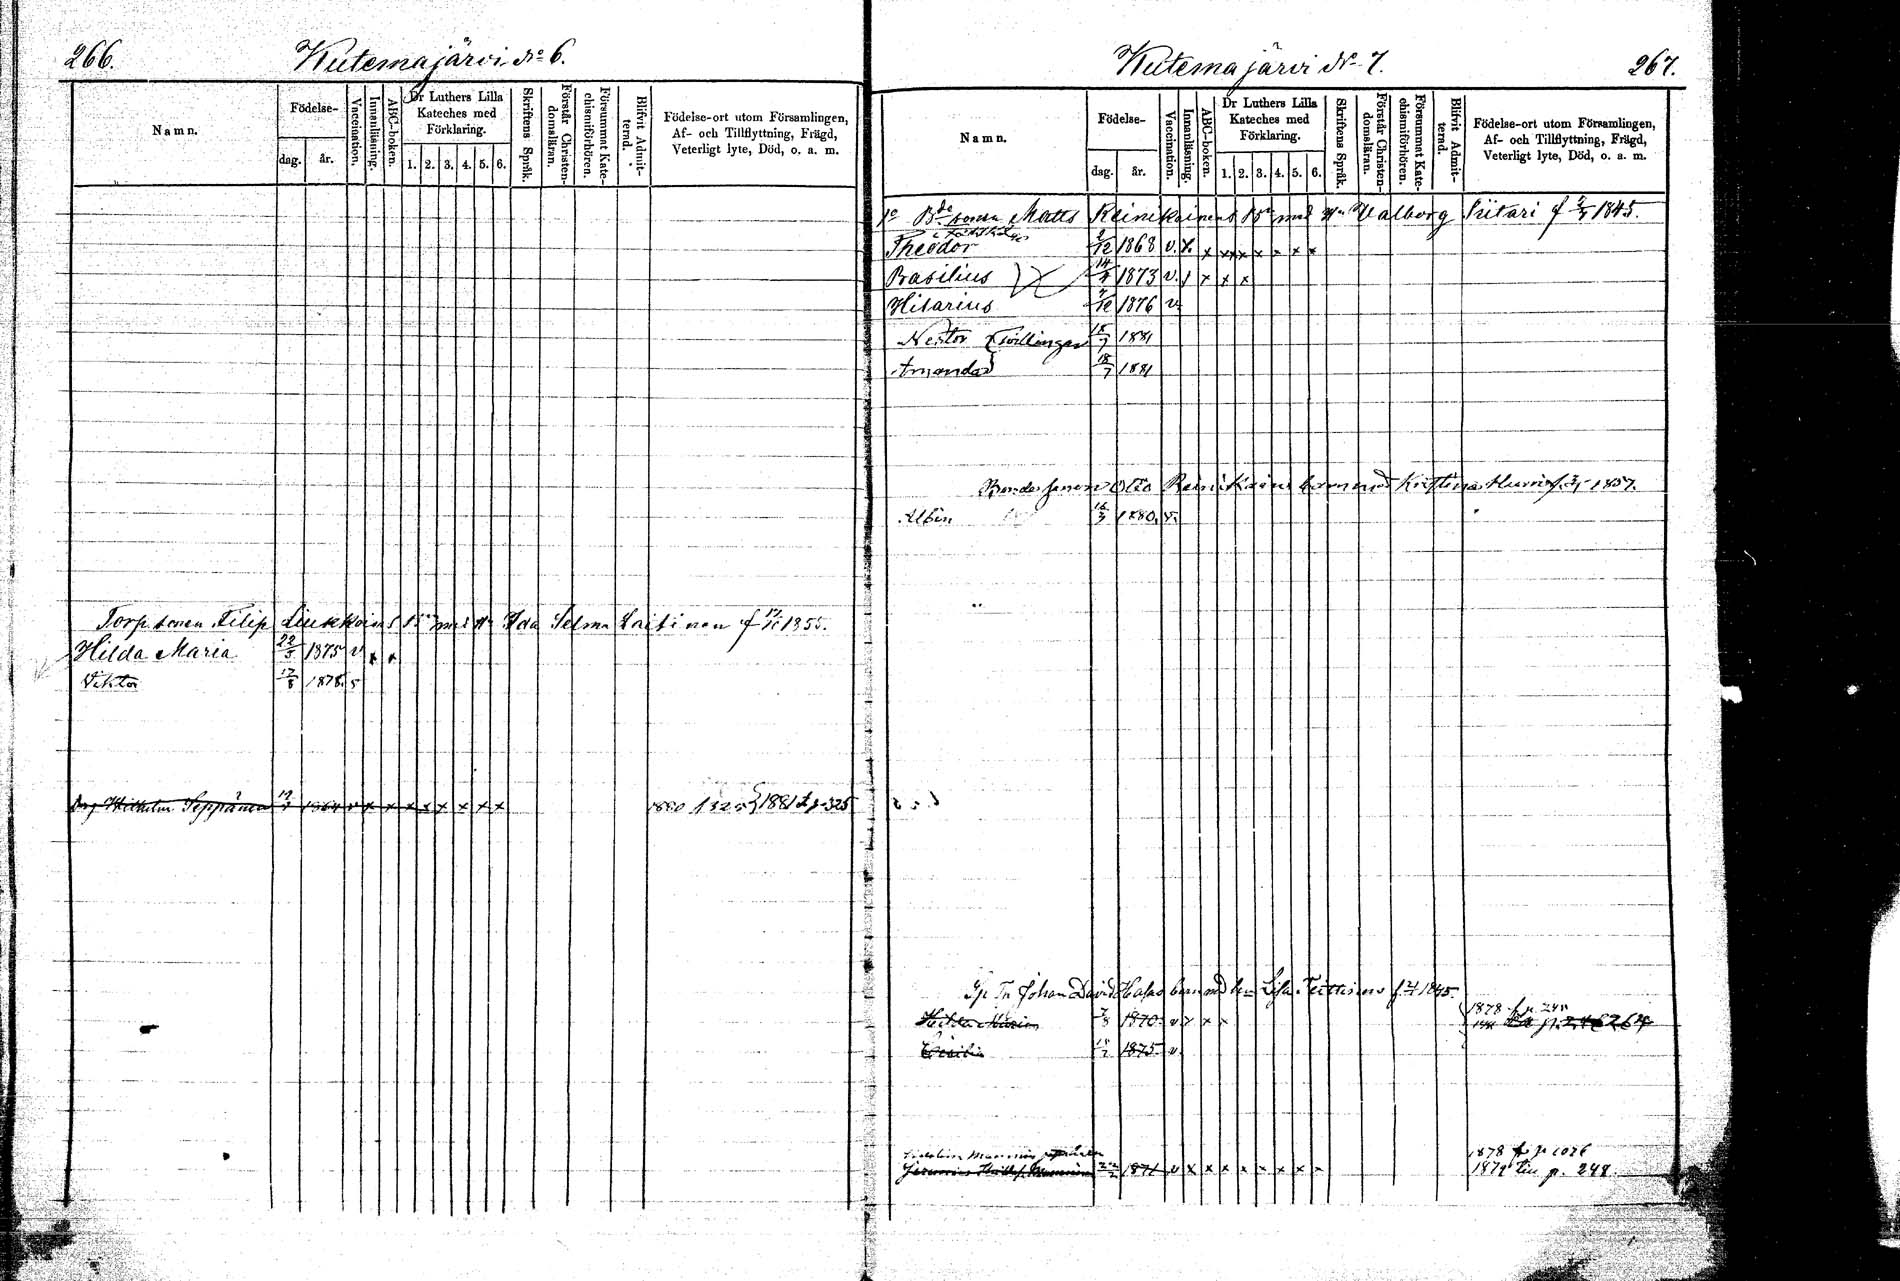 266. Wutemajärvi No 6.
Namn.
Födelse-
dag. år.
Vaccination.
Innanläsning.
ABC-boken.
Dr Luthers Lilla Kateches med Förklaring.
1. 2. 3. 4. 5. 6.
Skriftens Språk.
Förstår Christendomsläran.
Försummat Katechismiförhören.
Blifvit Admitterad.
Födelse-ort utom Församlingen, Af- och Tillflyttning, Frägd, Veterligt lyte, Död, o. a. m.
Torp sonen Filip Liukkoins Bn med H. Ida Selma Laitinen f 17/11 1855.
Hilda Maria 22/5 1875 v x x
Viktor 17/8 1878. v
Wilhelm Seppänen 1864 v x x x x x x x x 1880 1325 1881 t p. 325
Wutemajärvi No 7. 267.
Namn.
Födelse-
dag. år.
Vaccination.
Innanläsning.
ABC-boken.
Dr Luthers Lilla Kateches med Förklaring.
1. 2. 3. 4. 5. 6.
Skriftens Språk.
Förstår Christendomsläran.
Försummat Katechismiförhören.
Blifvit Admitterad.
Födelse-ort utom Församlingen, Af- och Tillflyttning, Frägd, Veterligt lyte, Död, o. a. m.
Bde sonen Matts Reinikainens Bn med H. Valborg Siitari f 1845.
Theodor 2/12 1868 v. x x x x x x x x x
Basilius 14/4 1873 v. x x x
Hilarius 7/12 1876 v.
Nestor Tvillingar 18/7 1881
Amanda 18/7 1881
Bonde sonen Otto Reinikains barn med Kristina Hurri f. 1857.
Albin 16/3 1880. v.
Johan David Halas barn med hu Lisa Teittinen f. 1845.
Hilda Maria 7/8 1870. v x x x 1878 f p. 248
264
Cecilia 1875. v.
Manninen
22/2 1871 v x x x x x x x x 1878 fr p 1026
1879 till p. 248.